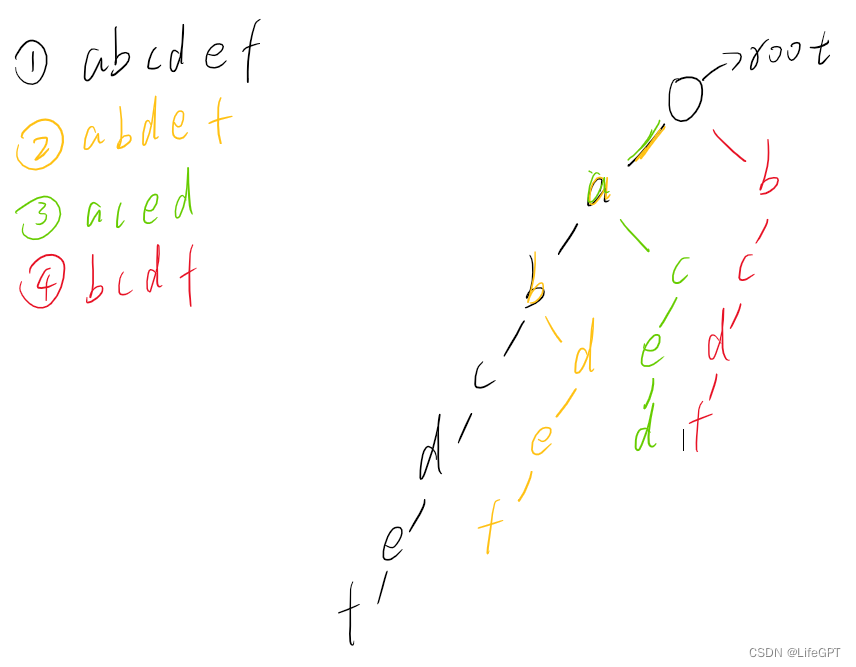 ① abcdef
② abdef
③ aced
④ bcdf
root
a b
b c c
c d e d
d e d f
e f
f
CSDN @LifeGPT